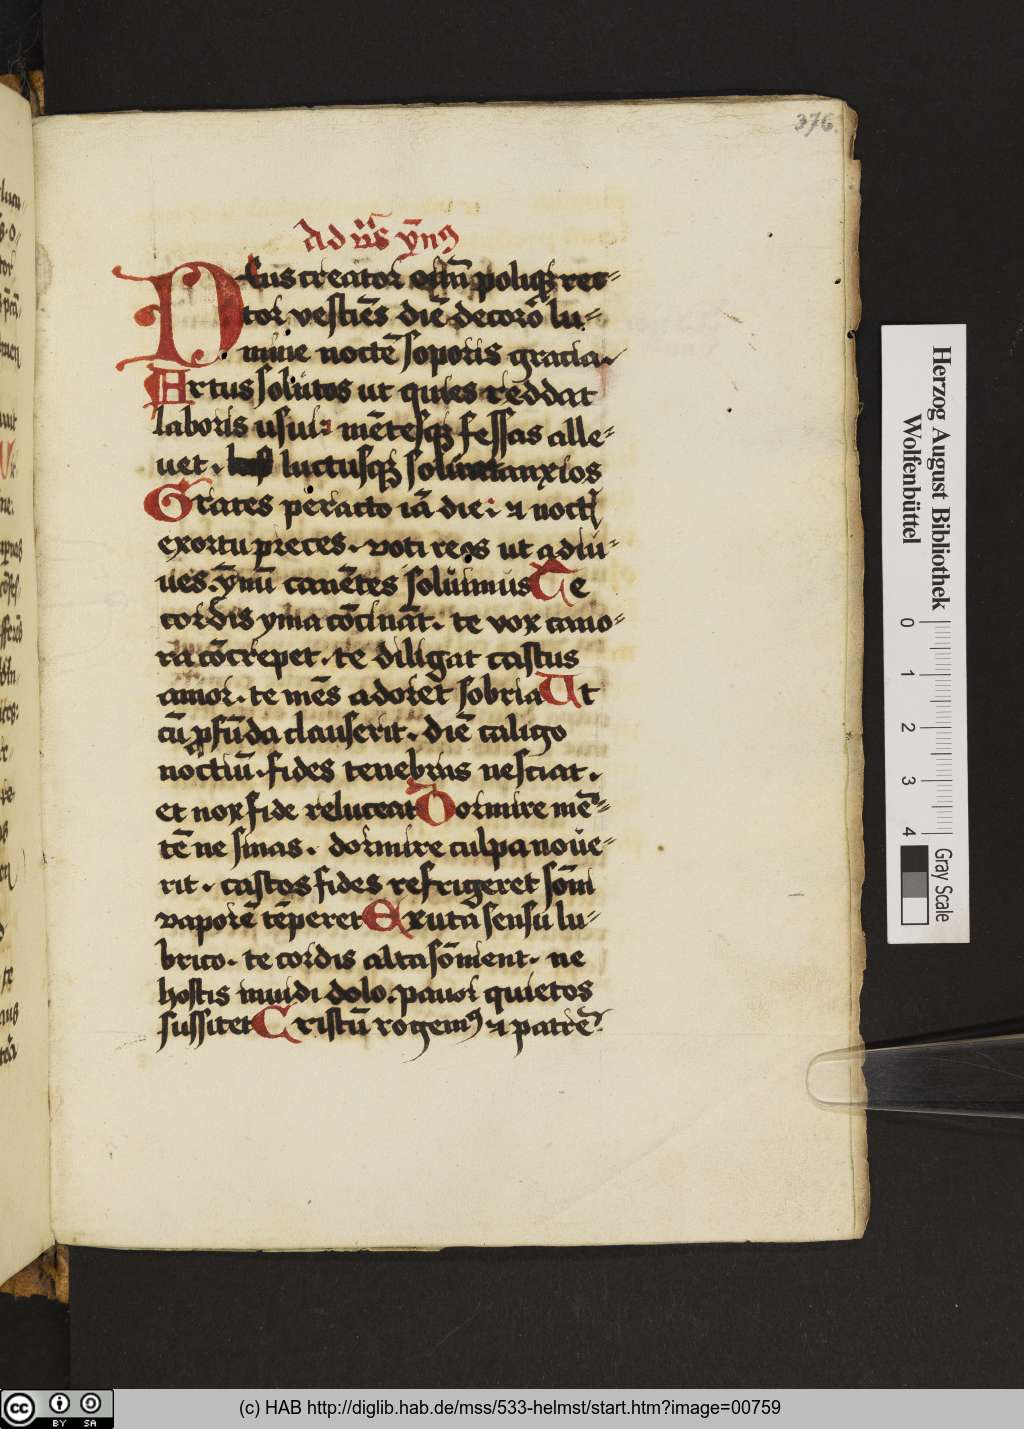 376.
Ad vr̄s ym̄nꝰ
Deus creator om̄iū poliqꝫ rec-
tor vestiēs diē decorō lu-
mine noctē soporis gracia.
Artus solutos ut quies reddat
laboris usui: mētesqꝫ fessas alle-
uet. luctusqꝫ soluat anxios
Grates peracto iā die: ⁊ noctꝭ
exortu preces. voti reos ut adiu-
ues. ȳmū canētes soluimus Te
cordis yma cōcināt. te vox cano-
ra cōcrepet. te diligat castus
amor. te mēs adoret sobria Ut
cū ꝓfūda clauserit. diē caligo
noctiū. fides tenebras nesciat.
et nox fide reluceat Dormire mē-
tē ne sinas. dormire culpa noue-
rit. castos fides refrigeret sōni
vaporē tēperet Exuta sensu lu-
brico. te cordis alta sōnient. ne
hostis inuidi dolo. pauor quietos
sussitet Cristū rogemꝰ ⁊ patrē.
Herzog August Bibliothek
Wolfenbüttel
0 1 2 3 4
Gray Scale
(c) HAB http://diglib.hab.de/mss/533-helmst/start.htm?image=00759
cc BY SA